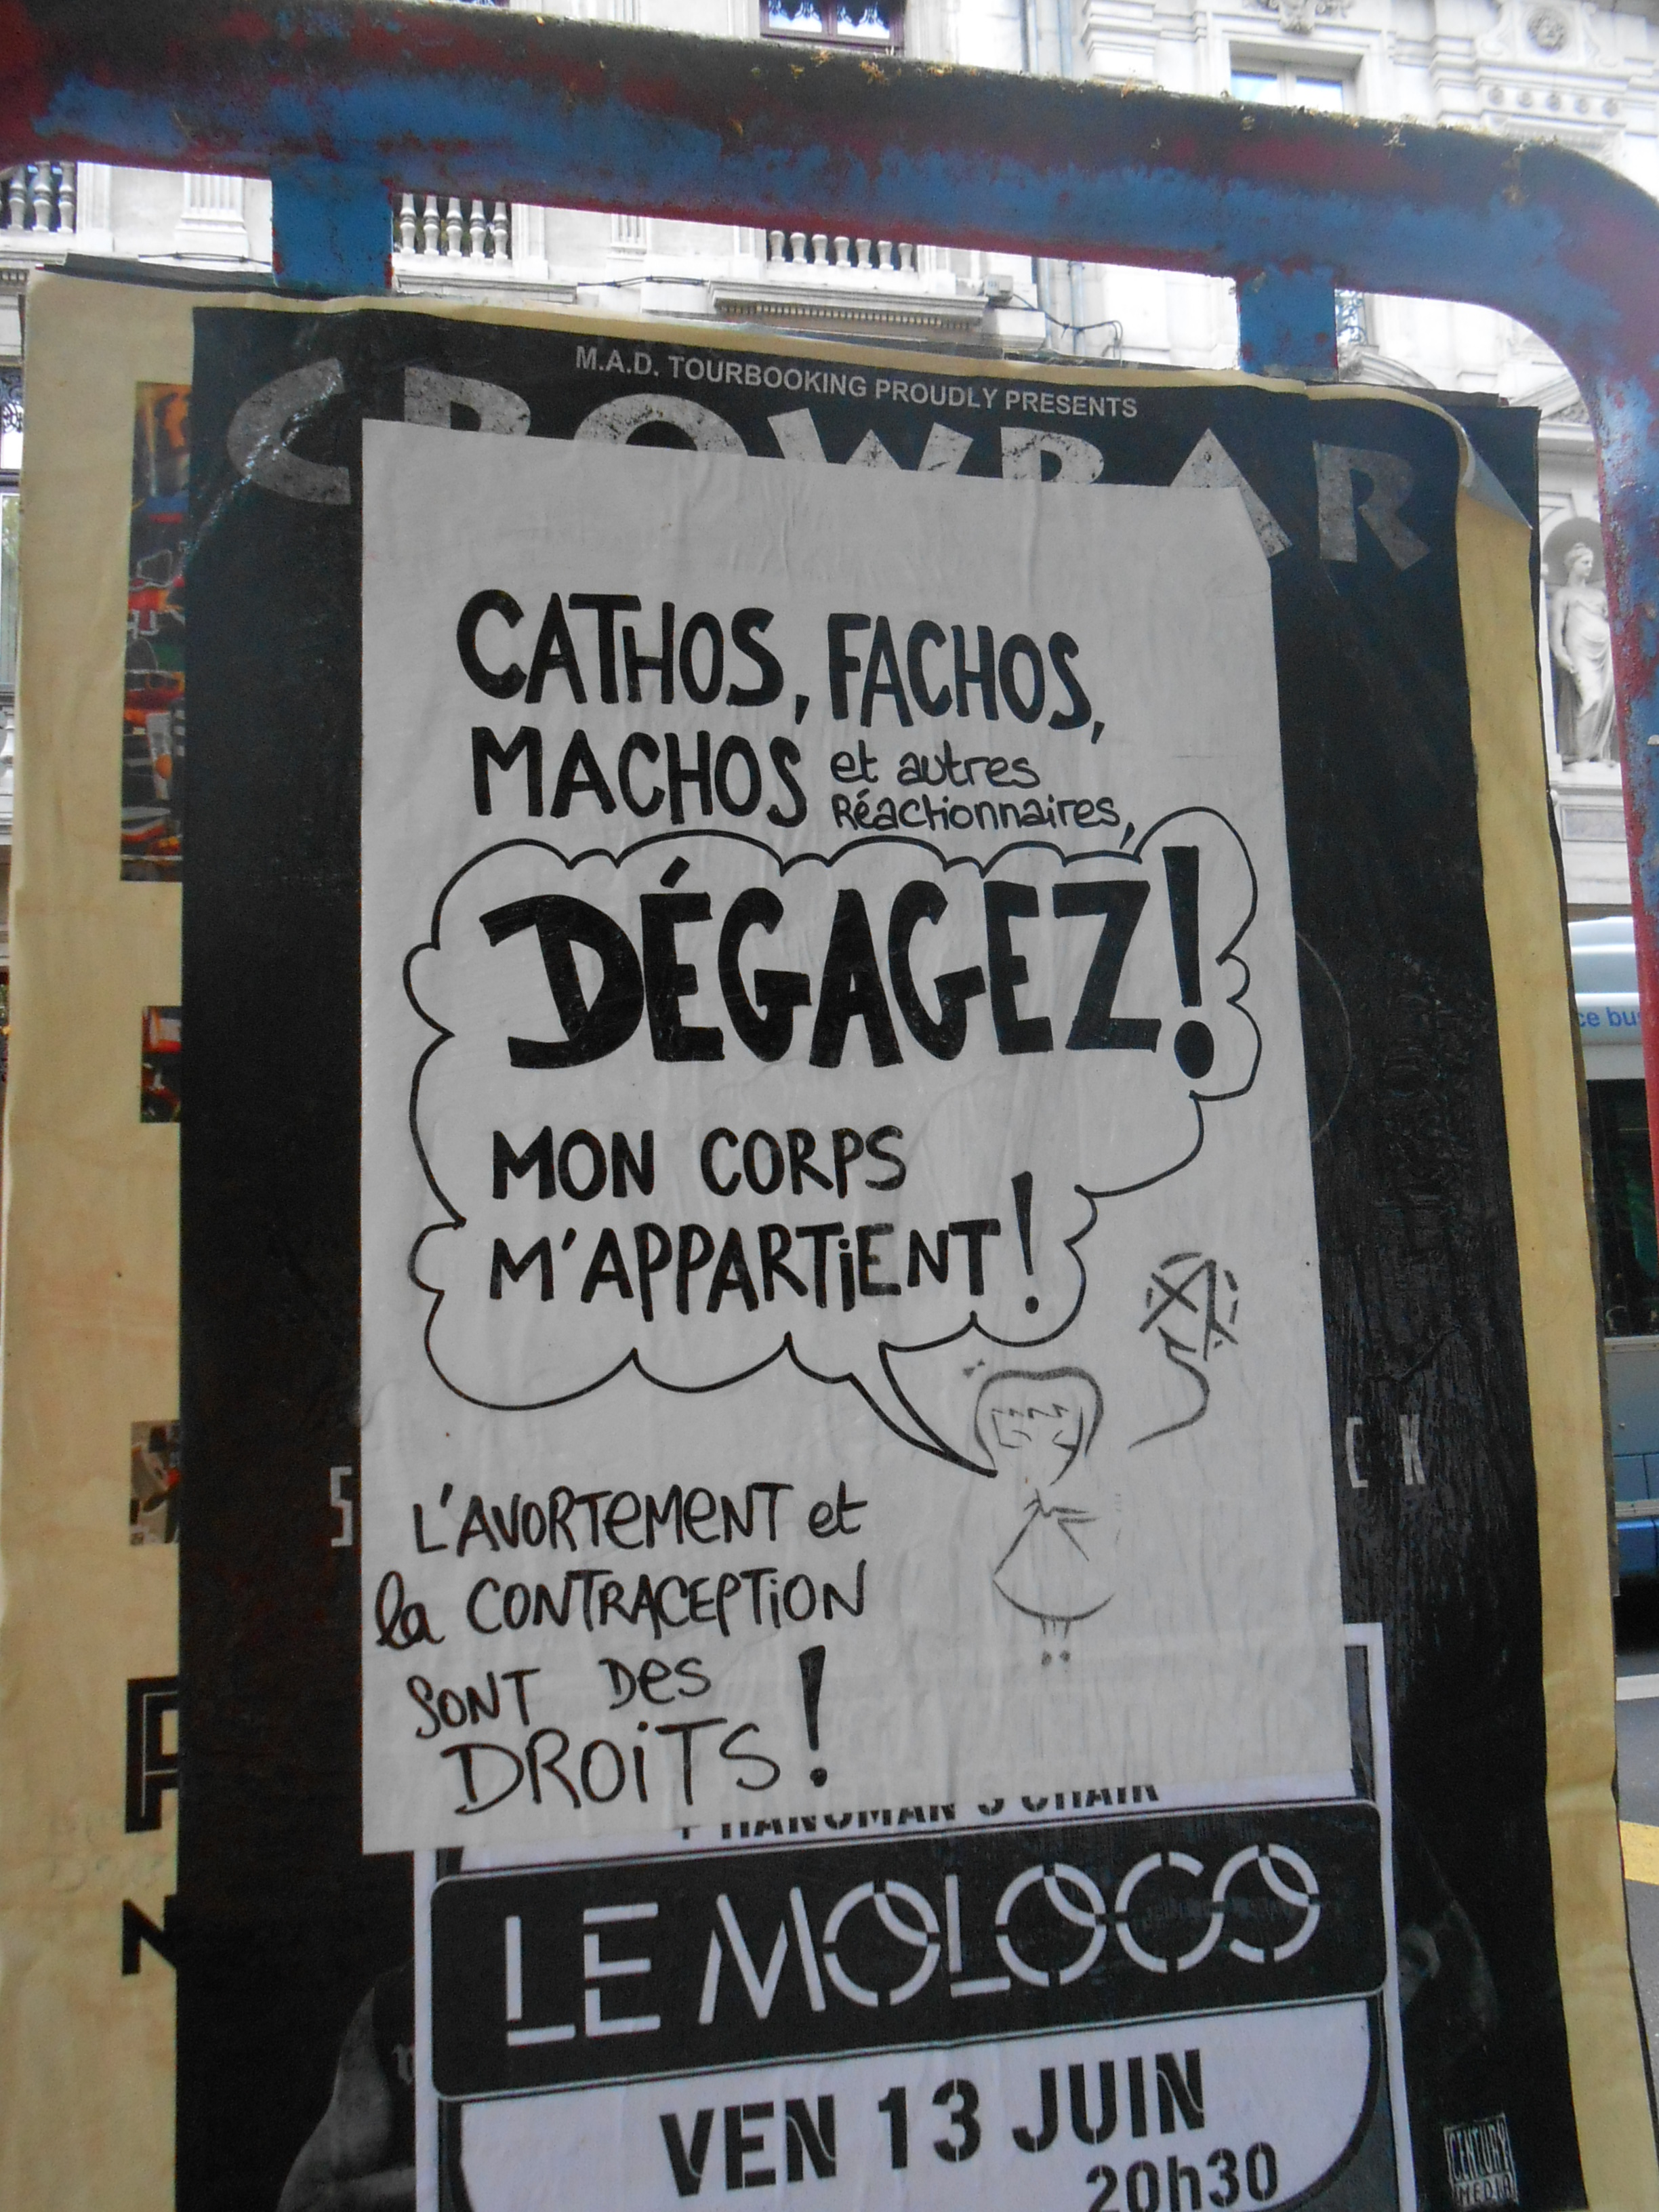 M.A.D. TOURBOOKING PROUDLY PRESENTS
CROWBAR
CATHOS, FACHOS,
MACHOS et autres
Réactionnaires,
DÉGAGEZ!
MON CORPS
M'APPARTiENT!
L'AVORTEMENT et
la CONTRACEPTiON
SONT Des
DROiTS!
LE MOLOCO
VEN 13 JUIN
20h30
CENTURY
MEDIA